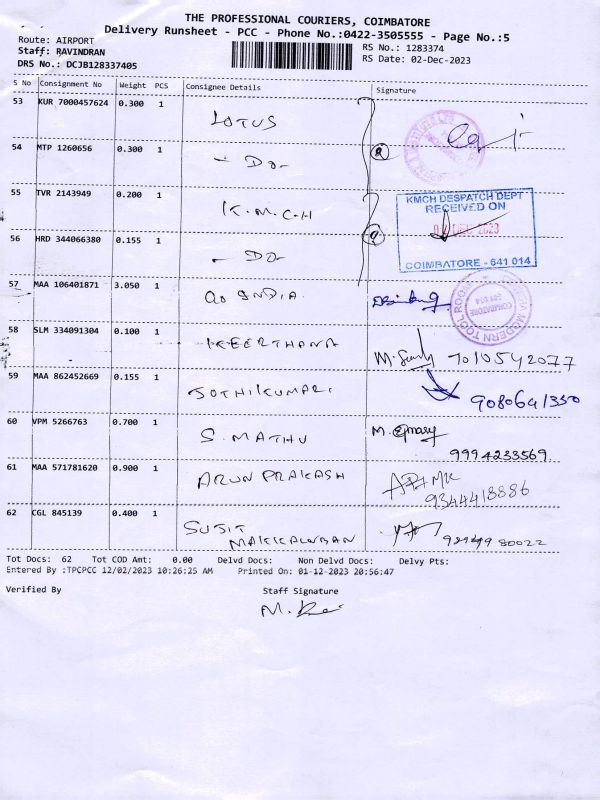 THE PROFESSIONAL COURIERS, COIMBATORE
Delivery Runsheet - PCC - Phone No.:0422-3505555 - Page No.:5
Route: AIRPORT
Staff: RAVINDRAN
DRS No.: DCJB128337405
RS No.: 1283374
RS Date: 02-Dec-2023
S No Consignment No Weight PCS Consignee Details Signature
53 KUR 7000457624 0.300 1 LOTUS
54 MTP 1260656 0.300 1 - Do -
55 TVR 2143949 0.200 1 K.M.C.H
KMCH DESPATCH DEPT
RECEIVED ON
2023
COIMBATORE - 641 014
56 HRD 344066380 0.155 1 - DO -
57 MAA 106401871 3.050 1 INDIA
MODERN TOOL ROOM
COIMBATORE
641 014
58 SLM 334091304 0.100 1 KEERTHANA 7010542077
59 MAA 862452669 0.155 1 JOTHIKUMARI 9080641330
60 VPM 5266763 0.700 1 S. MATHU 9994233569
61 MAA 571781620 0.900 1 ARUN PRAKASH 9344418886
62 CGL 845139 0.400 1 SUJIT
Tot Docs: 62 Tot COD Amt: 0.00 Delvd Docs: Non Delvd Docs: Delvy Pts:
Entered By :TPCPCC 12/02/2023 10:26:25 AM Printed On: 01-12-2023 20:56:47
Verified By Staff Signature